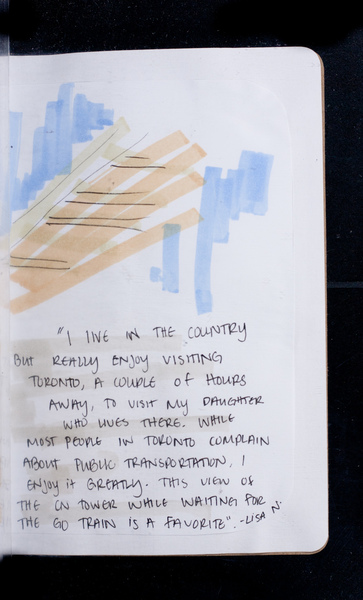 "I LIVE IN THE COUNTRY
BUT REALLY ENJOY VISITING
TORONTO, A COUPLE OF HOURS
AWAY, TO VISIT MY DAUGHTER
WHO LIVES THERE. WHILE
MOST PEOPLE IN TORONTO COMPLAIN
ABOUT PUBLIC TRANSPORTATION, I
ENJOY IT GREATLY. THIS VIEW OF
THE CN TOWER WHILE WAITING FOR
THE GO TRAIN IS A FAVORITE". -LISA N.